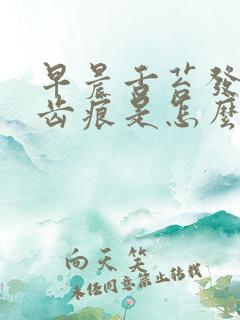 早晨舌苔發
齒痕是怎麼
向天笑
未经同意禁止转载